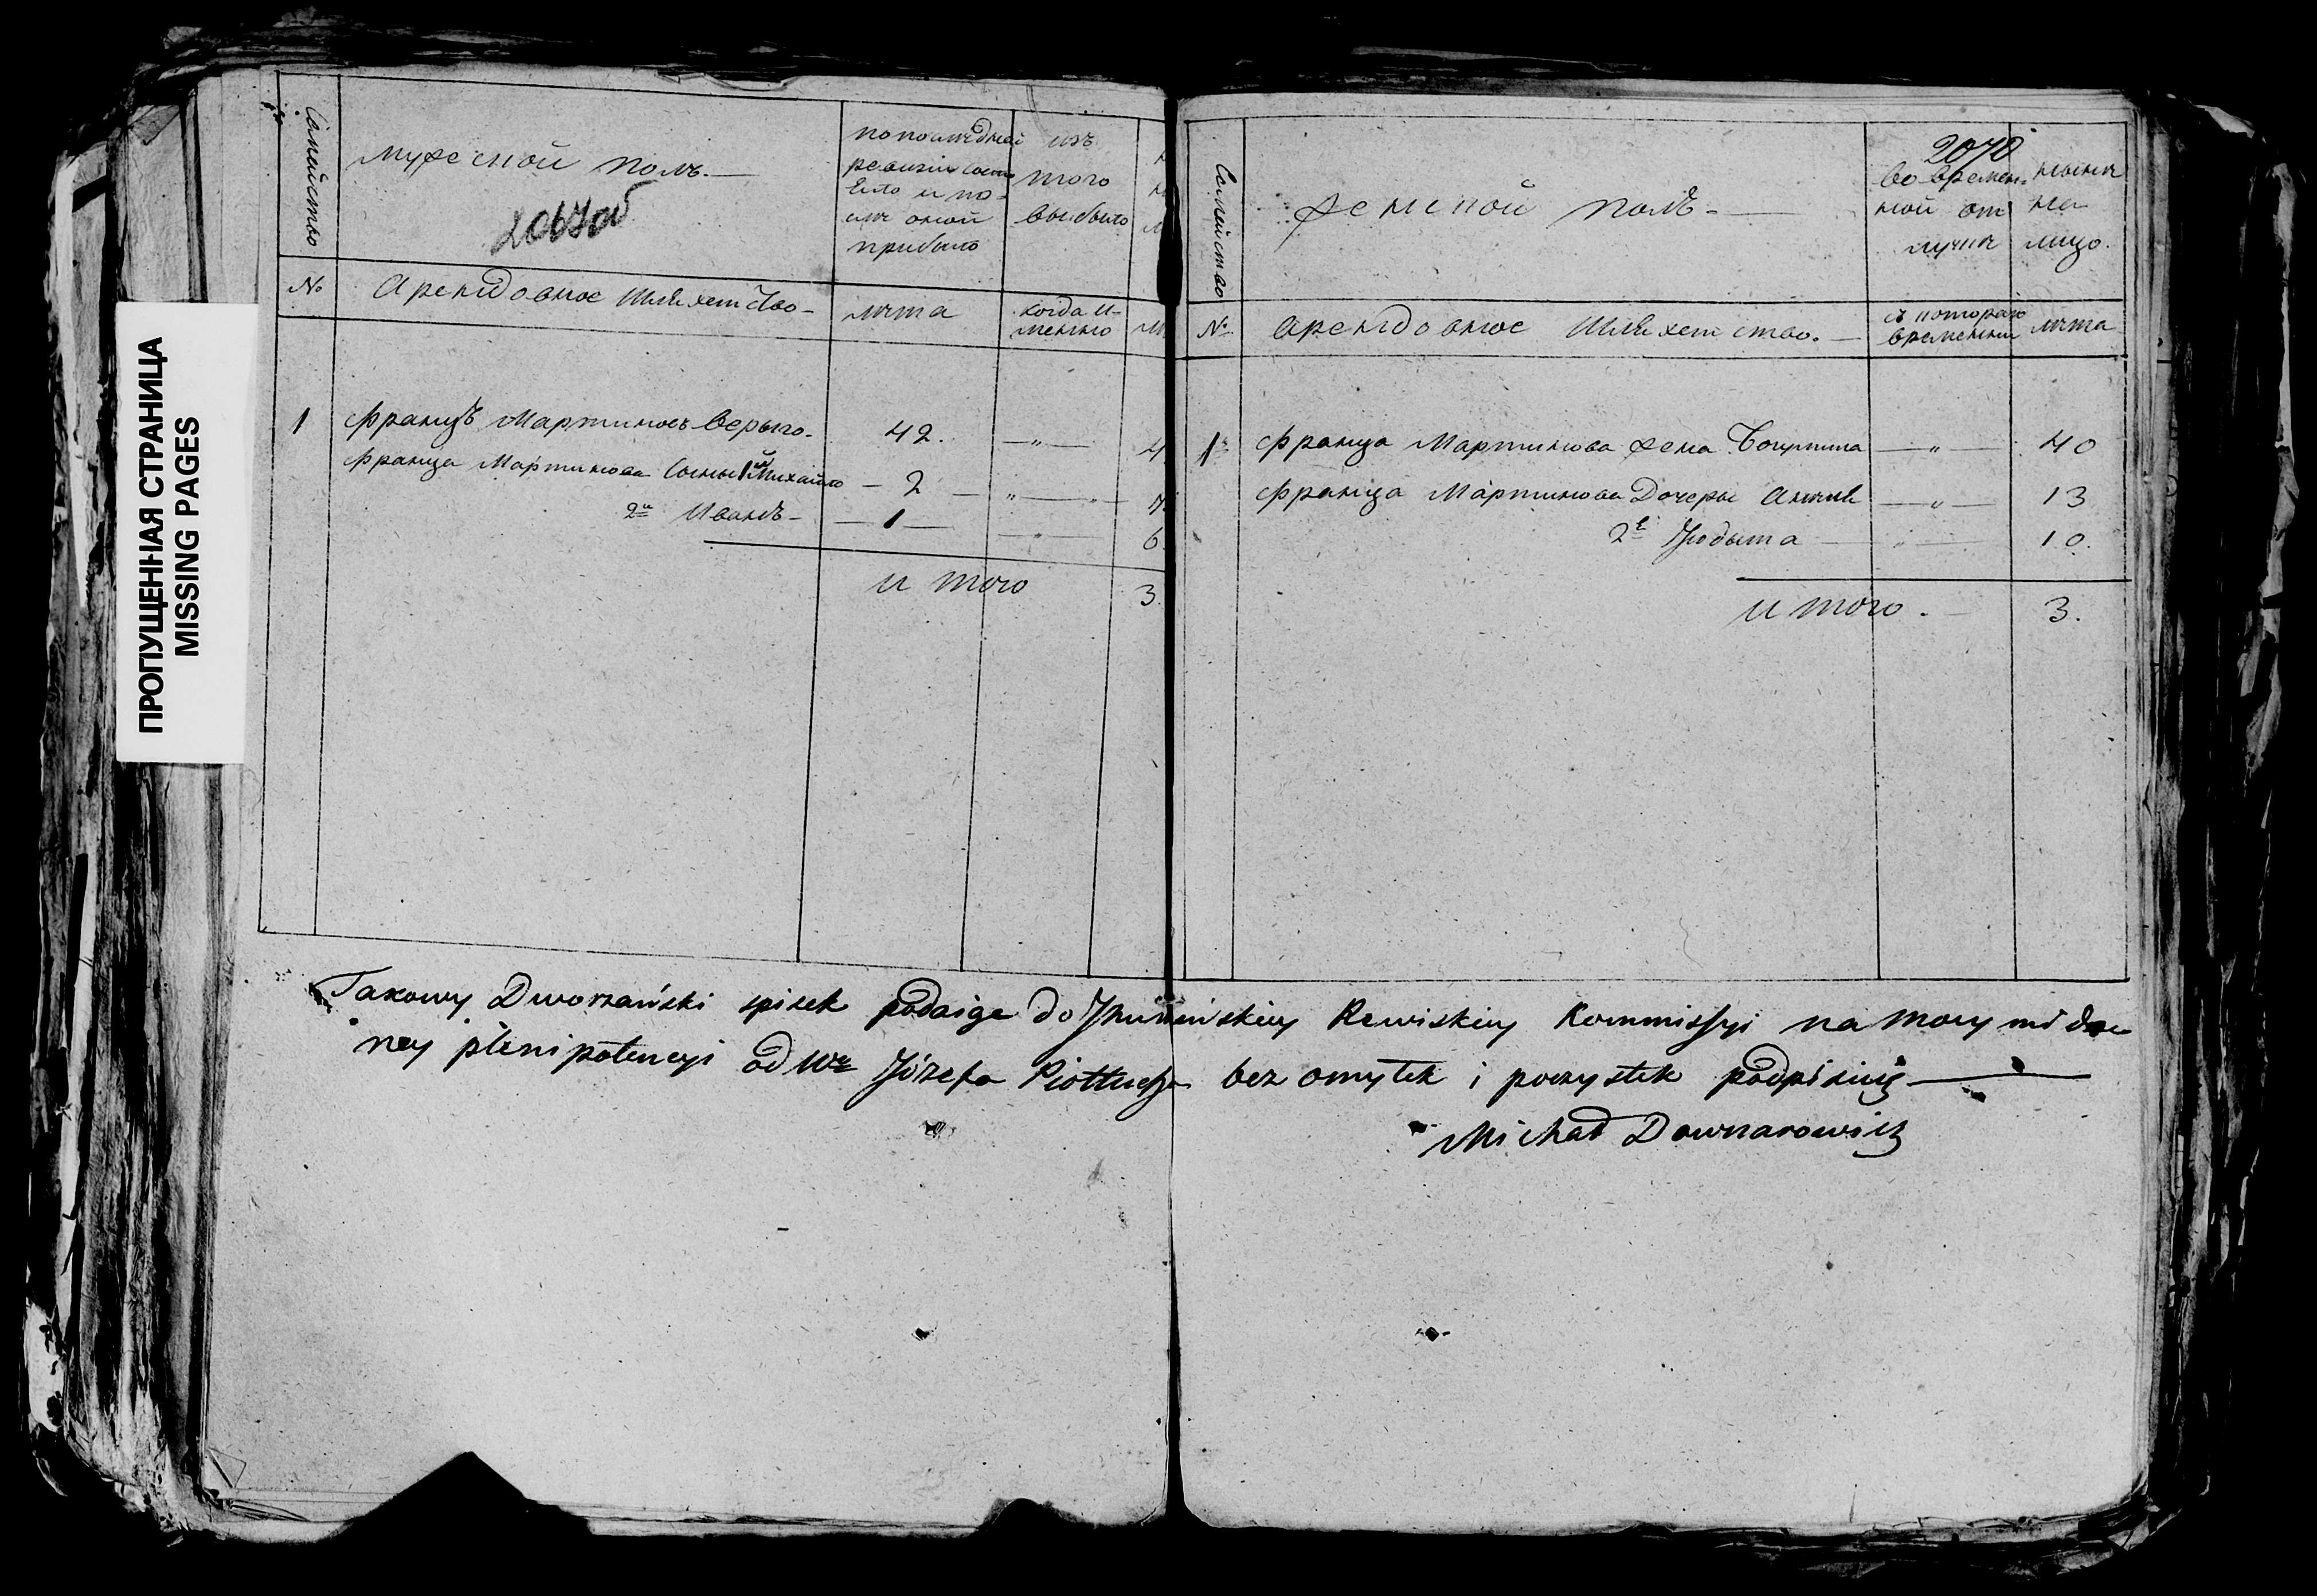 ПРОПУЩЕННАЯ СТРАНИЦА
MISSING PAGES
Семейство
мужеской полъ.
2067об
по последней
ревизіи состо
ело и по-
сле оной
прибыло
изъ
того
выбыло
№
Арендовное Шляхетство-
лета
когда и-
менно
1 Францъ Мартиновъ Верыго. 42. — „ — 4
Франца Мартинова Сыны 1й Михайло — 2 — „ — 7
2й Иванъ — 1 — „ — 6
итого 3
Семейство
женской полъ-
2070
во времен-
ной от
лучке
ныне
на
лицо.
№
арендовное Шляхетство.
съ котораго
времени
лета
1 Франца Мартинова жена — „ — 40
Франца Мартинова Дочеры — „ — 13
2е Юдыта — „ — 10.
итого. 3.
Takowy Dworzański spisek podaige do Jhumińskiey Rewiskiey Kommissyi na mocy mi da
ney plenipotencyi od Wo Józefa bez omyłek i poczystek podpisuię
Michał Downarowicz